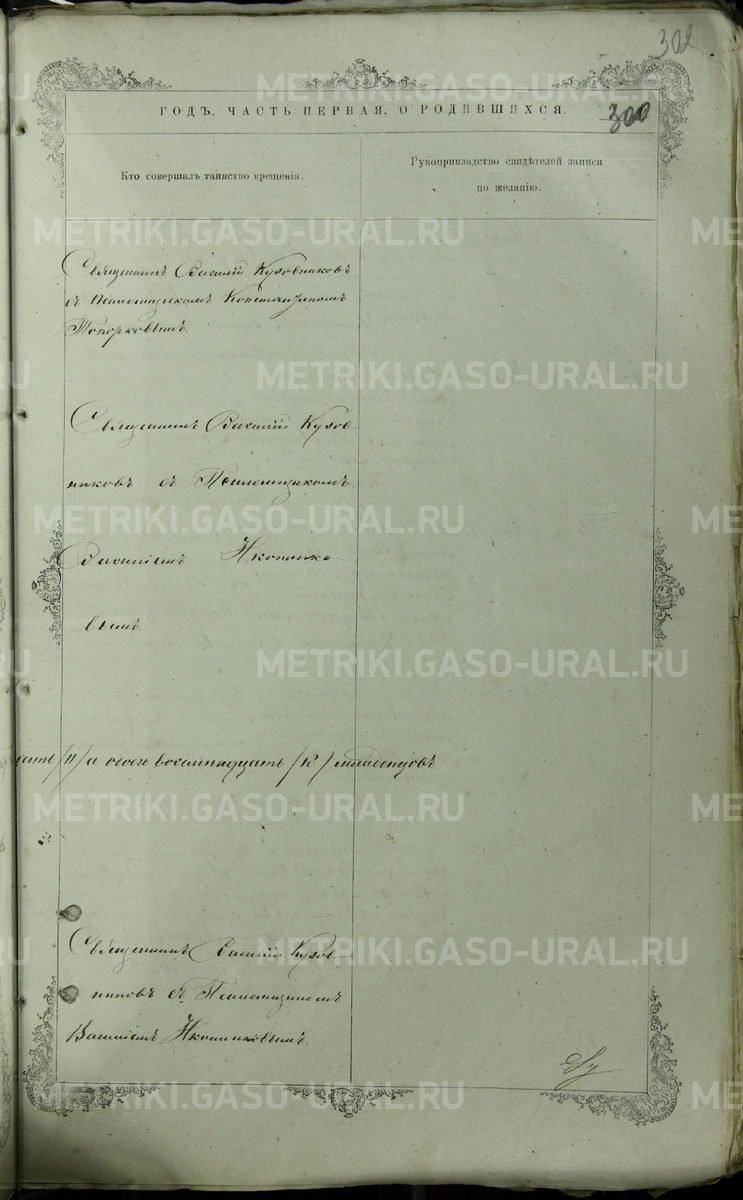 302
ГОДЪ. ЧАСТЬ ПЕРВАЯ, О РОДИВШИХСЯ.
300
Кто совершалъ таинство крещенія.
Рукоприкладство свидѣтелей записи
по желанію.
Священникъ Василій Кузовниковъ
съ Псаломщикомъ Константиномъ
Топорковымъ.
Священникъ Василій Кузов-
никовъ съ Псаломщикомъ
Василіемъ Икониико-
вымъ.
а всего восемнадцать /18/ младенцовъ
Священникъ Василій Кузов-
никовъ съ Псаломщикомъ
Василіемъ Иконниковымъ.
METRIKI.GASO-URAL.RU